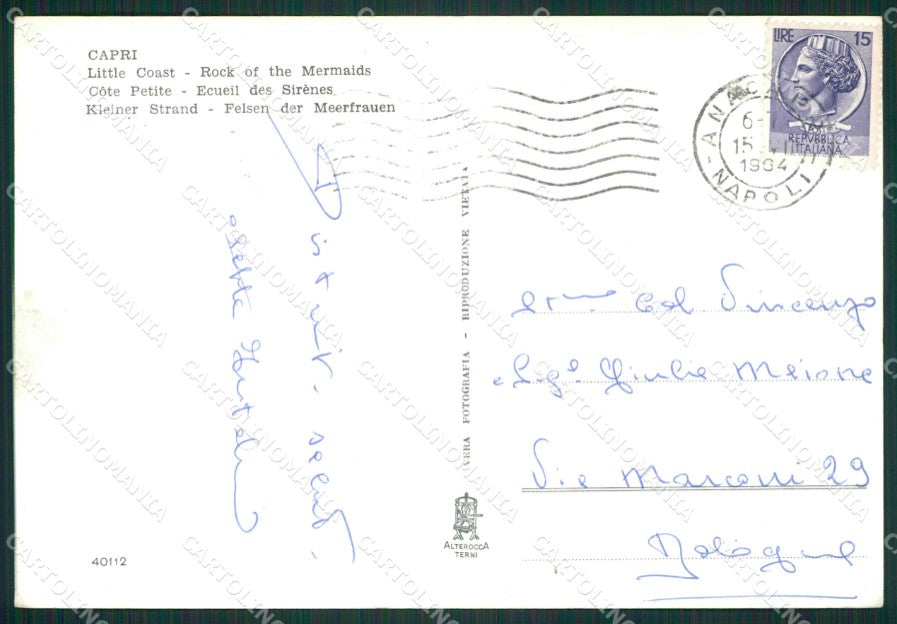 CAPRI
Little Coast - Rock of the Mermaids
Côte Petite - Ecueil des Sirènes
Kleiner Strand - Felsen der Meerfrauen
LIRE 15
REPVBBLICA
ITALIANA
ANACAPRI
6-
15
1964
NAPOLI
Distinti saluti
VERA FOTOGRAFIA - RIPRODUZIONE VIETATA
Col Vincenzo
e Sig.a Giulia Meione
Via Marconi 29
Bologna
ALTEROCCA
TERNI
40112
CARTOLINOMANIA